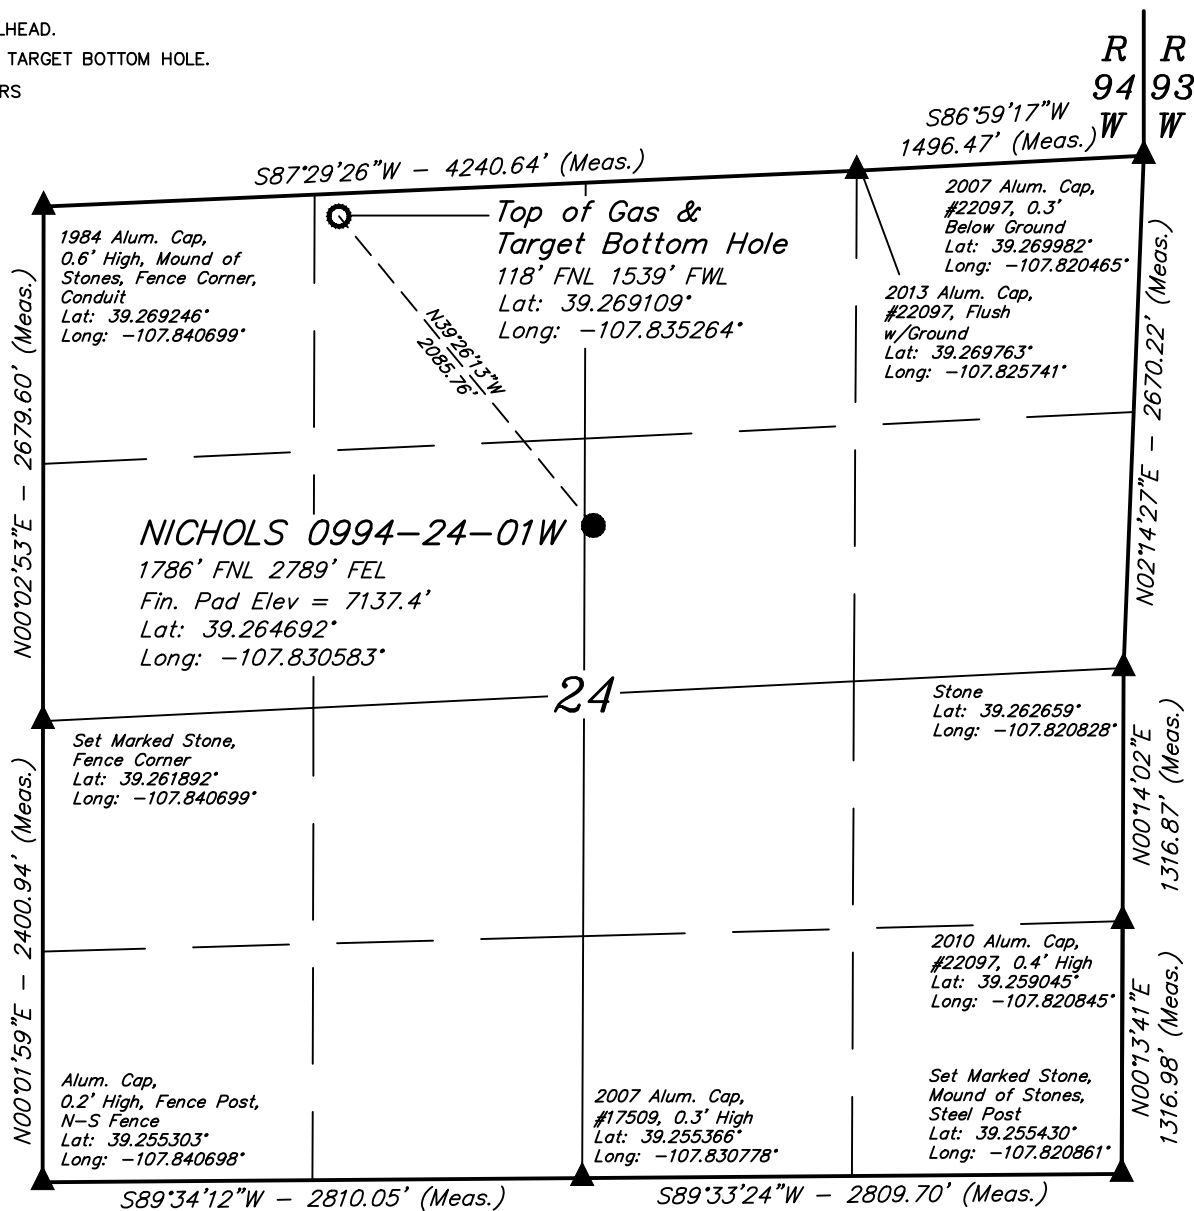 LHEAD.
TARGET BOTTOM HOLE.
RS
R R
94 93
W W
S86°59'17"W
1496.47' (Meas.)
S87°29'26"W - 4240.64' (Meas.)
2007 Alum. Cap,
#22097, 0.3'
Below Ground
Lat: 39.269982°
Long: -107.820465°
Top of Gas &
Target Bottom Hole
118' FNL 1539' FWL
Lat: 39.269109°
Long: -107.835264°
1984 Alum. Cap,
0.6' High, Mound of
Stones, Fence Corner,
Conduit
Lat: 39.269246°
Long: -107.840699°
2013 Alum. Cap,
#22097, Flush
w/Ground
Lat: 39.269763°
Long: -107.825741°
N39°26'13"W
2085.76'
N00°02'53"E - 2679.60' (Meas.)
N02°14'27"E - 2670.22' (Meas.)
NICHOLS 0994-24-01W
1786' FNL 2789' FEL
Fin. Pad Elev = 7137.4'
Lat: 39.264692°
Long: -107.830583°
24
Stone
Lat: 39.262659°
Long: -107.820828°
Set Marked Stone,
Fence Corner
Lat: 39.261892°
Long: -107.840699°
N00°14'02"E
1316.87' (Meas.)
N00°01'59"E - 2400.94' (Meas.)
2010 Alum. Cap,
#22097, 0.4' High
Lat: 39.259045°
Long: -107.820845°
N00°13'41"E
1316.98' (Meas.)
Alum. Cap,
0.2' High, Fence Post,
N-S Fence
Lat: 39.255303°
Long: -107.840698°
2007 Alum. Cap,
#17509, 0.3' High
Lat: 39.255366°
Long: -107.830778°
Set Marked Stone,
Mound of Stones,
Steel Post
Lat: 39.255430°
Long: -107.820861°
S89°34'12"W - 2810.05' (Meas.)
S89°33'24"W - 2809.70' (Meas.)